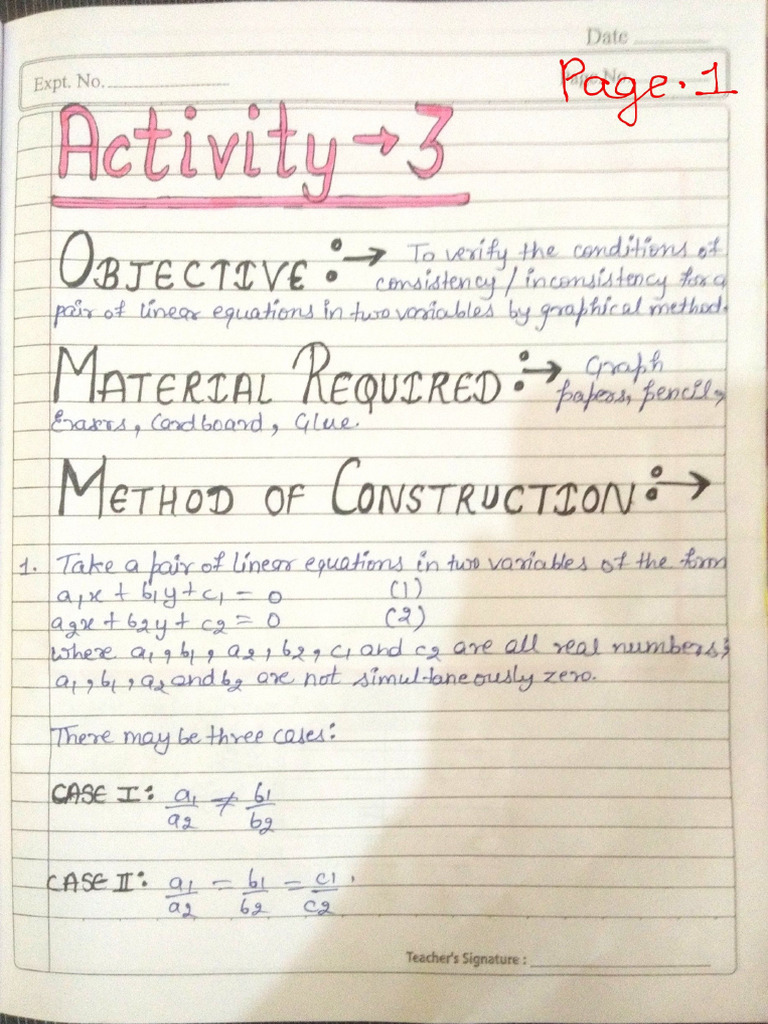 Date
Expt. No.
Page. 1
Activity → 3
OBJECTIVE :→ To verify the conditions of
consistency / inconsistency for a
pair of linear equations in two variables by graphical method.
MATERIAL REQUIRED :→ Graph
papers, pencil,
Erasers, Cardboard, Glue.
METHOD OF CONSTRUCTION :→
1. Take a pair of linear equations in two variables of the form
a₁x + b₁y + c₁ = 0 (1)
a₂x + b₂y + c₂ = 0 (2)
where a₁, b₁, a₂, b₂, c₁ and c₂ are all real numbers;
a₁, b₁, a₂ and b₂ are not simultaneously zero.
There may be three cases:
CASE I: a₁/a₂ ≠ b₁/b₂
CASE II: a₁/a₂ = b₁/b₂ = c₁/c₂.
Teacher's Signature :